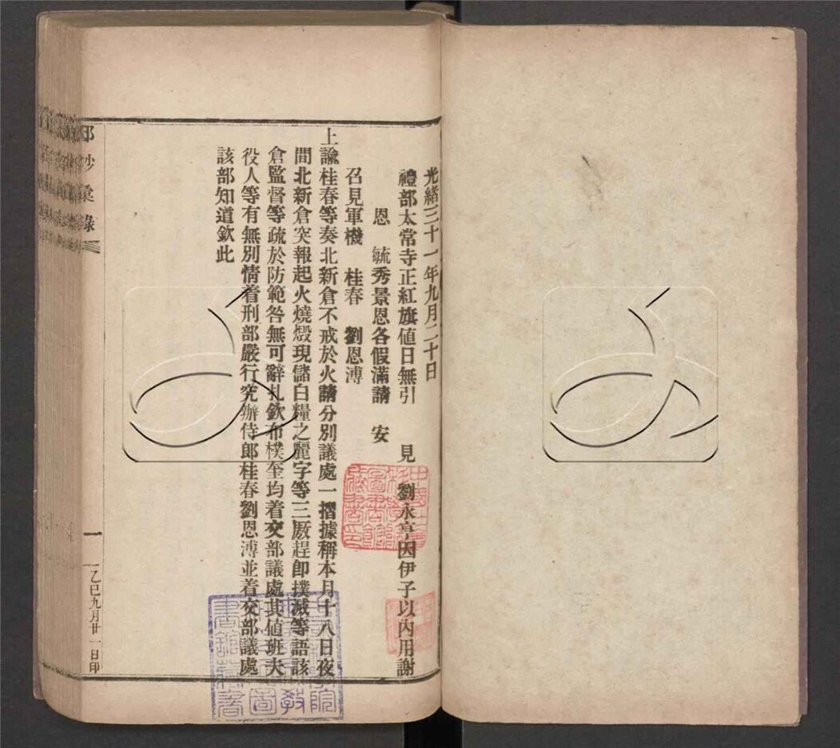 光緒三十一年九月二十日
禮部太常寺正紅旗值日無引 見 劉永亨因伊子以內用謝
恩 毓秀景恩各假滿請 安
召見軍機 桂春 劉恩溥
上諭桂春等奏北新倉不戒於火請分別議處一摺據稱本月十八日夜
間北新倉突報起火燒燬現儲白糧之麗字等三廒趕即撲滅等語該
倉監督等疏於防範咎無可辭札欽布樸奎均着交部議處其值班夫
役人等有無別情着刑部嚴行究辦侍郎桂春劉恩溥並着交部議處
該部知道欽此
邸抄彙錄
一
乙巳九月廿一日印